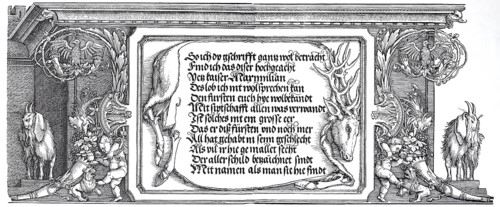 So ich dy gschrifft gantz wol betracht
Find ich das diser hochgeacht
Von kaiser Maximilian
Des lob ich nit volsprechen kan
Den fürsten auch hye wolbekandt
Mit siptschafft allen was verwandt
Ist solches nit ein grosse eer
Das er diß fürsten und noch mer
All hat gehabt in seim geschlecht
Als vil ir hie gemallet secht
Der aller schild bezaichnet sindt
Mit namen als man sie hie findt